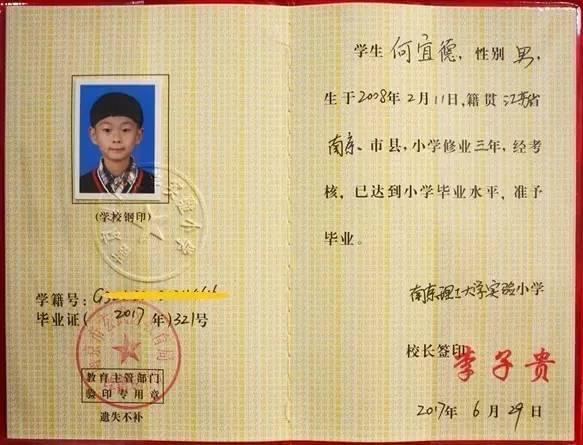 (学校钢印)
学籍号:
毕业证( 2017 年)321号
教育主管部门
验印专用章
遗失不补
学生 何宜德, 性别 男,
生于2008年2月11日,籍贯江苏省
南京、市县,小学修业三年,经考
核,已达到小学毕业水平,准予
毕业。
南京理工大学实验小学
校长签印
李子贵
2017年 6月29日